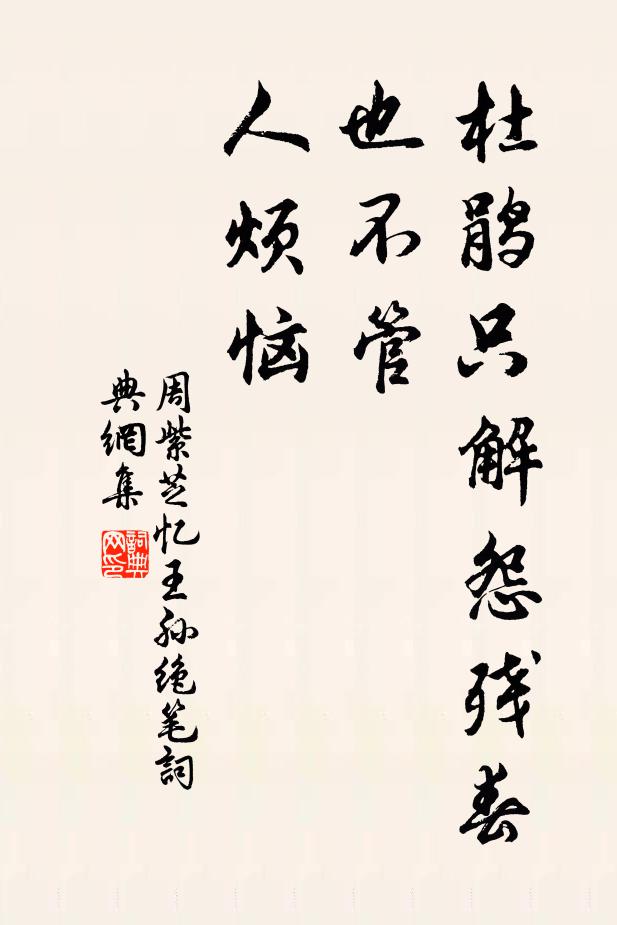 杜鹃只解怨残春
也不管
人烦恼
周紫芝忆王孙绝笔詞
典網集
詞典
网印